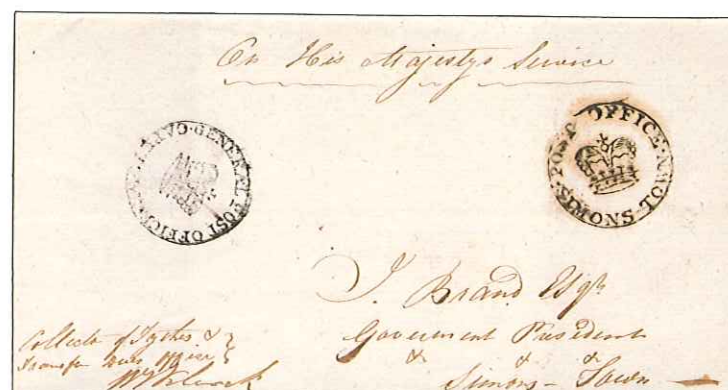 On His Majestys Service
GENERAL POST OFFICE
POST OFFICE · SIMONS TOWN
J. Brand Esqr
Government Resident
& & &
Simons - Town
Collectr of Tythes &
Transfer Dues